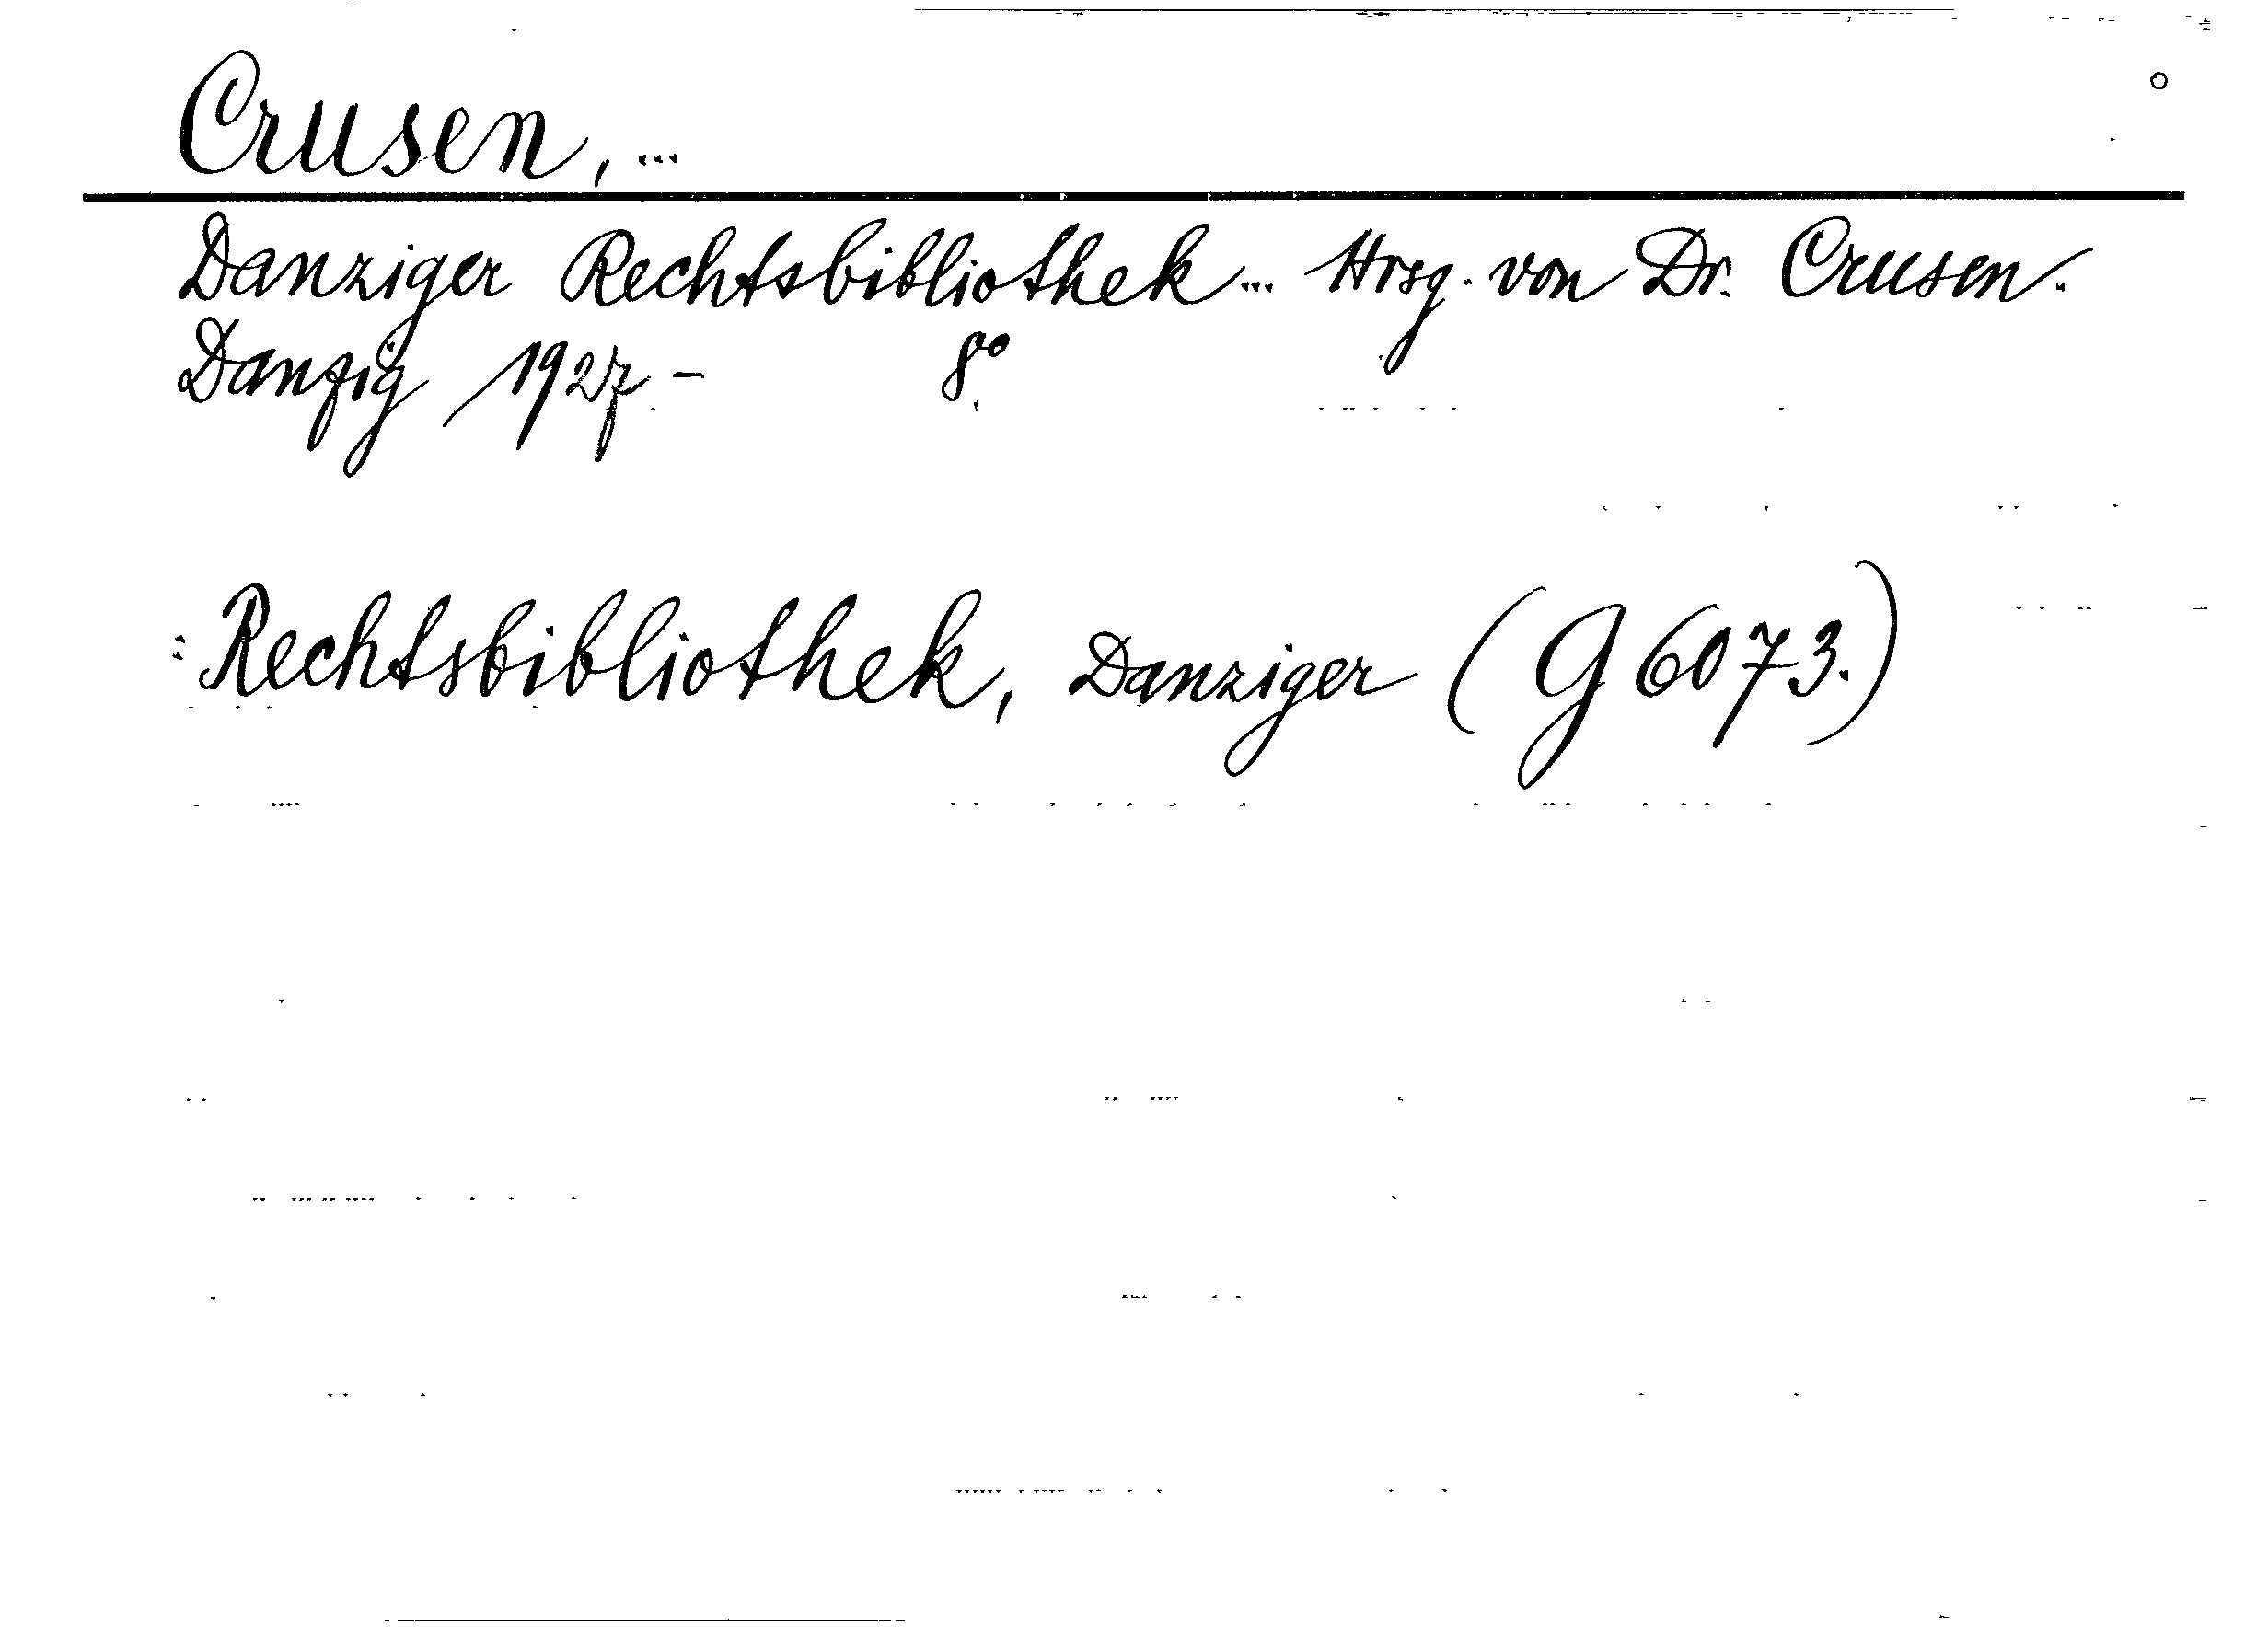 Crusen, ...
Danziger Rechtsbibliothek ... Hrsg. von Dr. Crusen.
Danzig 1927.- 8°.
: Rechtsbibliothek, Danziger (G 6073.)